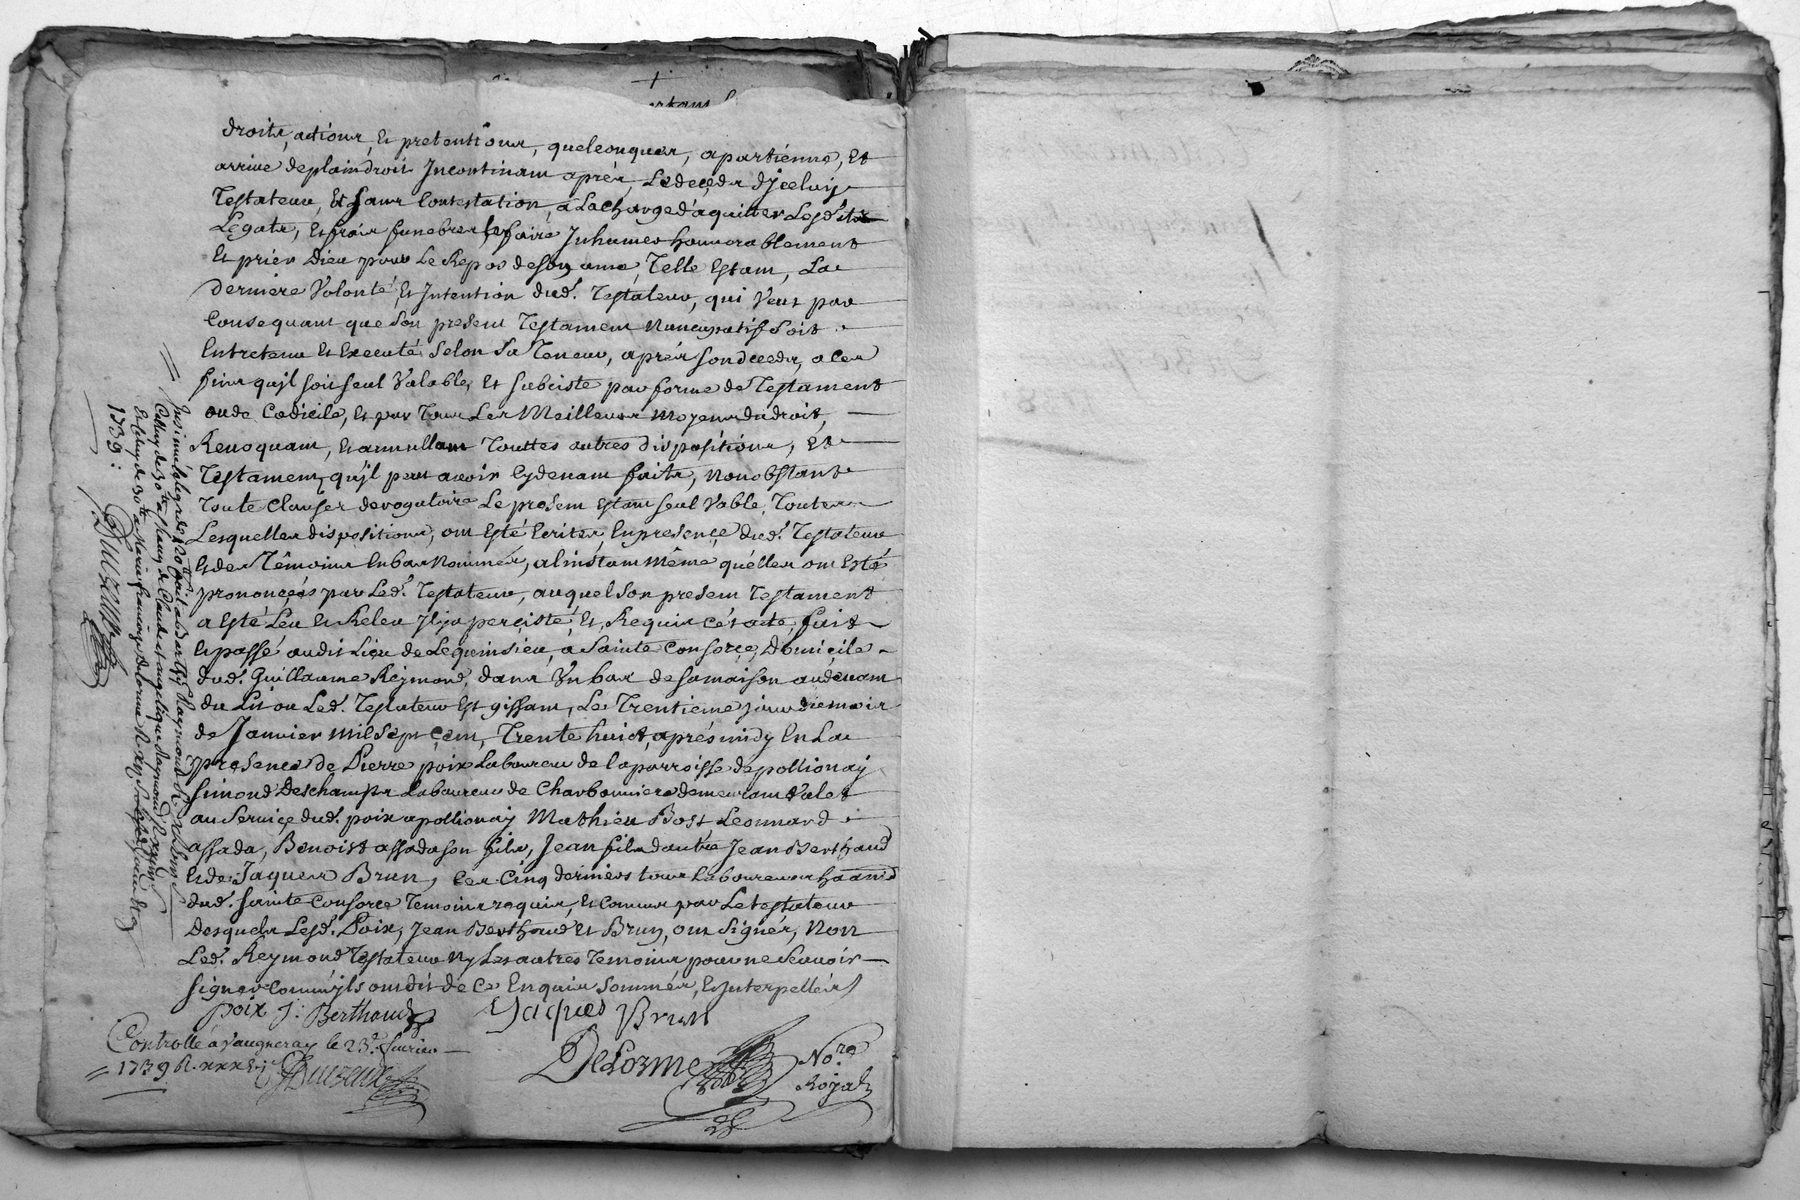 droits, actions, et pretentions, quelconques, apartienne, et
arrive deplaindroit Incontinant aprés, Le deçeds d'Jceluy
Testateur, Et sans Contestation, a La charge d'aquitter Lesds
Legats, et frais funebres le faire Inhumer honnorablement
Et prier Dieu pour Le Repos deson ame, Telle Estant, La
derniere Volonté Et Intention dud. Testateur, qui Veut par
Consequant que Son present Testament Nuncupatif Soit
Entretenu Et Executé Selon Sa Teneur, aprés son deceds, a Ces
fins qu'jl soit seul Valable, et subciste par forme de Testament
ou de Codicile, et par Tous Les Meilleurs moyens du droit,
Revoquant, et annullant Touttes autres dispositions, Et
Testament qu'jl peut avoir Cydevant faits, Nonobstant
Toute Clauses derogatoires Le present Estant seul Vable, Toutes
Lesquelles dispositions, ont Esté Ecrites, En presençe dud. Testateur
Et des Témoins En bas Nommés, a l'instant même qu'elles ont Esté
prononçeés par Led. Testateur, auquel son present Testament
a Esté Leu et Releu Jl ya perçisté, et, Requis cét acte, fait
et passé audit Lieu de Lequinsieu, a Sainte Consorçe, Domiçile
dud. Guillaume Reymond, dans Un bas de sa maison audevant
du Lit ou Led. Testateur Est gissant, Le Trentieme jour du mois
de Janvier mil Sept Çent, Trente huict, aprés midy En La
presence de Pierre poix Laboureur de la parroisse de pollionay
Simond Deschamps Laboureur de Charbonniere demeurant Valet
au Serviçe dud. poix a pollionay Mathieu Bost Leonnard
assada, Benoist assada son fils, Jean fils d'autre Jean Berthaud
Et de Jaques Brun, Ces Cinq derniers tous Laboureurs ha͞an͞s
dud. sainte Consorce Temoins requis, et Connus par Le testateur
Desquels Lesd. Poix, Jean Berthaud et Brun, ont Signés, Non
Led. Reymond Testateur Ny Les autres Temoins pour ne Scavoir
signer Comm'jls ont dit de Ce Enquis Sommés, et Interpellés
poix J: Berthaud Jaques Brun
DeLorme No.re
Royal
Controllé à Vaugneray le 23e. fevrier
1739 R. xxx
Duzeux
Insinué le legs de
Celluy de 30 tt a fleury de Claude et angelique Raymond
Et celuy de 30 tt a Marie francoise Delorme
1739:
Duzeux